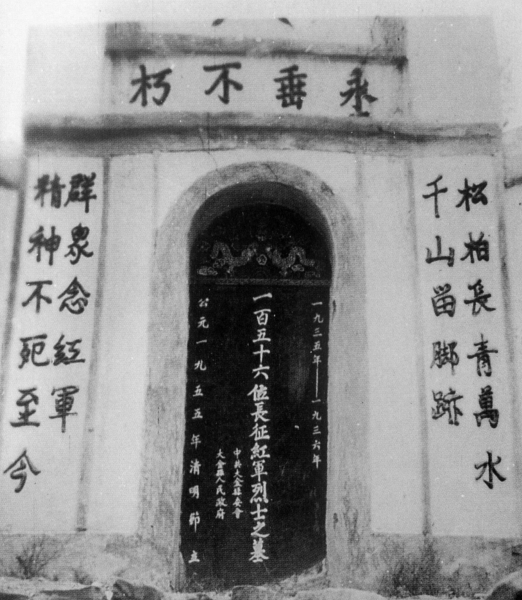 永垂不朽
松柏長青萬水
千山留脚跡
一九三五年——一九三六年
一百五十六位長征紅軍烈士之墓
中共大金縣委會
大金縣人民政府
公元一九五五年清明節立
群眾念紅軍
精神不死至今